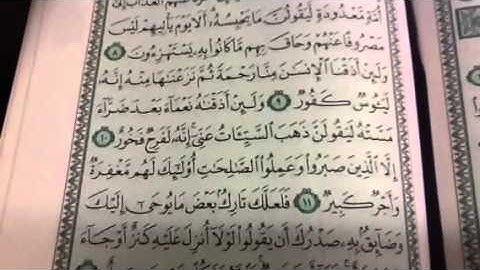 أُمَّةٍ مَّعْدُودَةٍ لَّيَقُولُنَّ مَا يَحْبِسُهُۥٓ أَلَا يَوْمَ يَأْتِيهِمْ لَيْسَ
مَصْرُوفًا عَنْهُمْ وَحَاقَ بِهِم مَّا كَانُوا۟ بِهِۦ يَسْتَهْزِءُونَ ٨
وَلَئِنْ أَذَقْنَا ٱلْإِنسَٰنَ مِنَّا رَحْمَةً ثُمَّ نَزَعْنَٰهَا مِنْهُ إِنَّهُۥ
لَيَـُٔوسٌ كَفُورٌ ٩ وَلَئِنْ أَذَقْنَٰهُ نَعْمَآءَ بَعْدَ ضَرَّآءَ
مَسَّتْهُ لَيَقُولَنَّ ذَهَبَ ٱلسَّيِّـَٔاتُ عَنِّىٓ إِنَّهُۥ لَفَرِحٌ فَخُورٌ ١٠
إِلَّا ٱلَّذِينَ صَبَرُوا۟ وَعَمِلُوا۟ ٱلصَّٰلِحَٰتِ أُو۟لَٰٓئِكَ لَهُم مَّغْفِرَةٌ
وَأَجْرٌ كَبِيرٌ ١١ فَلَعَلَّكَ تَارِكٌۢ بَعْضَ مَا يُوحَىٰٓ إِلَيْكَ
وَضَآئِقٌۢ بِهِۦ صَدْرُكَ أَن يَقُولُوا۟ لَوْلَآ أُنزِلَ عَلَيْهِ كَنزٌ أَوْ جَآءَ